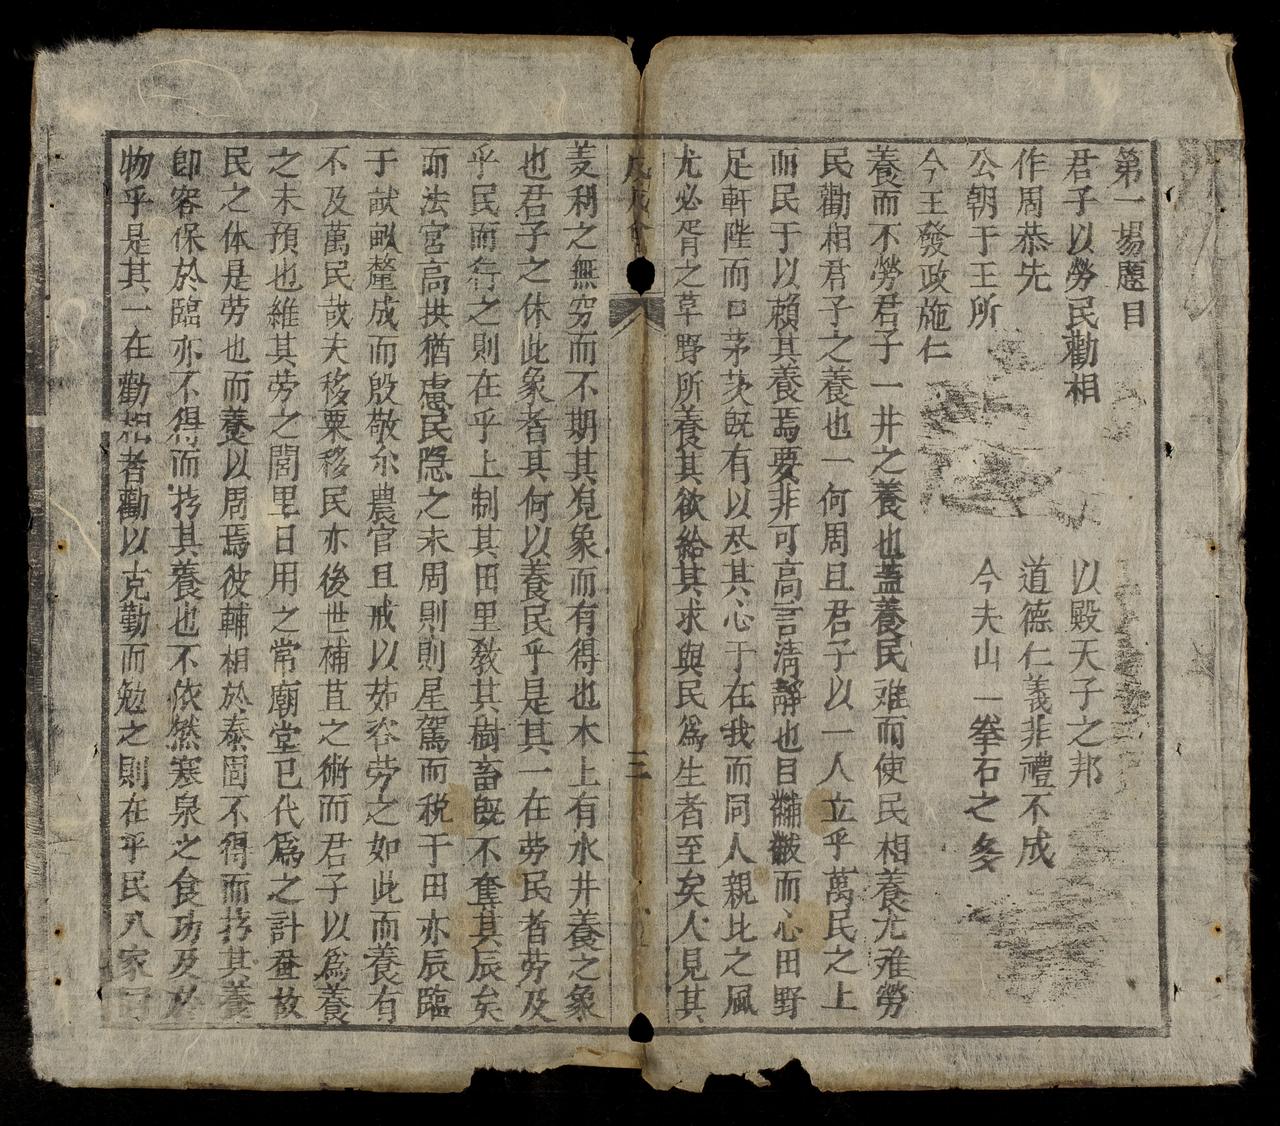 第一場題目
君子以勞民勸相
以殿天子之邦
作周恭先
道德仁義非禮不成
公朝于王所
今夫山一拳石之多
今王發政施仁
養而不勞君子一井之養也蓋養民难而使民相養尤难勞
民勸相君子之養也一何周且君子以一人立乎萬民之上
而民于以賴其養焉要非可高言淸靜也目黼黻而心田野
足軒陛而口茅茨旣有以尽其心于在我而同人親比之風
尤必胥之草野所養其欲給其求與民爲生者至矣人見其
三
羙利之無穷而不期其覌象而有得也木上有水井養之象
也君子之休此象者其何以養民乎是其一在劳民者劳及
乎民而行之則在乎上制其田里敎其樹畜旣不奪其辰矣
而法宮高拱猶慮民隐之未周則則星駕而税于田亦辰臨
于畎畝釐成而殷敬尓農官且戒以茹咨劳之如此而養有
不及萬民哉夫移粟移民亦後世補苴之術而君子以爲養
之未預也維其劳之閭里日用之常廟堂已代爲之計盘故
民之体是劳也而養以周焉彼輔相於泰固不得而拷其養
卽容保於臨亦不得而拷其養也不依然寒泉之食功及於
物乎是其一在勸相者勸以克勤而勉之則在乎民八家同